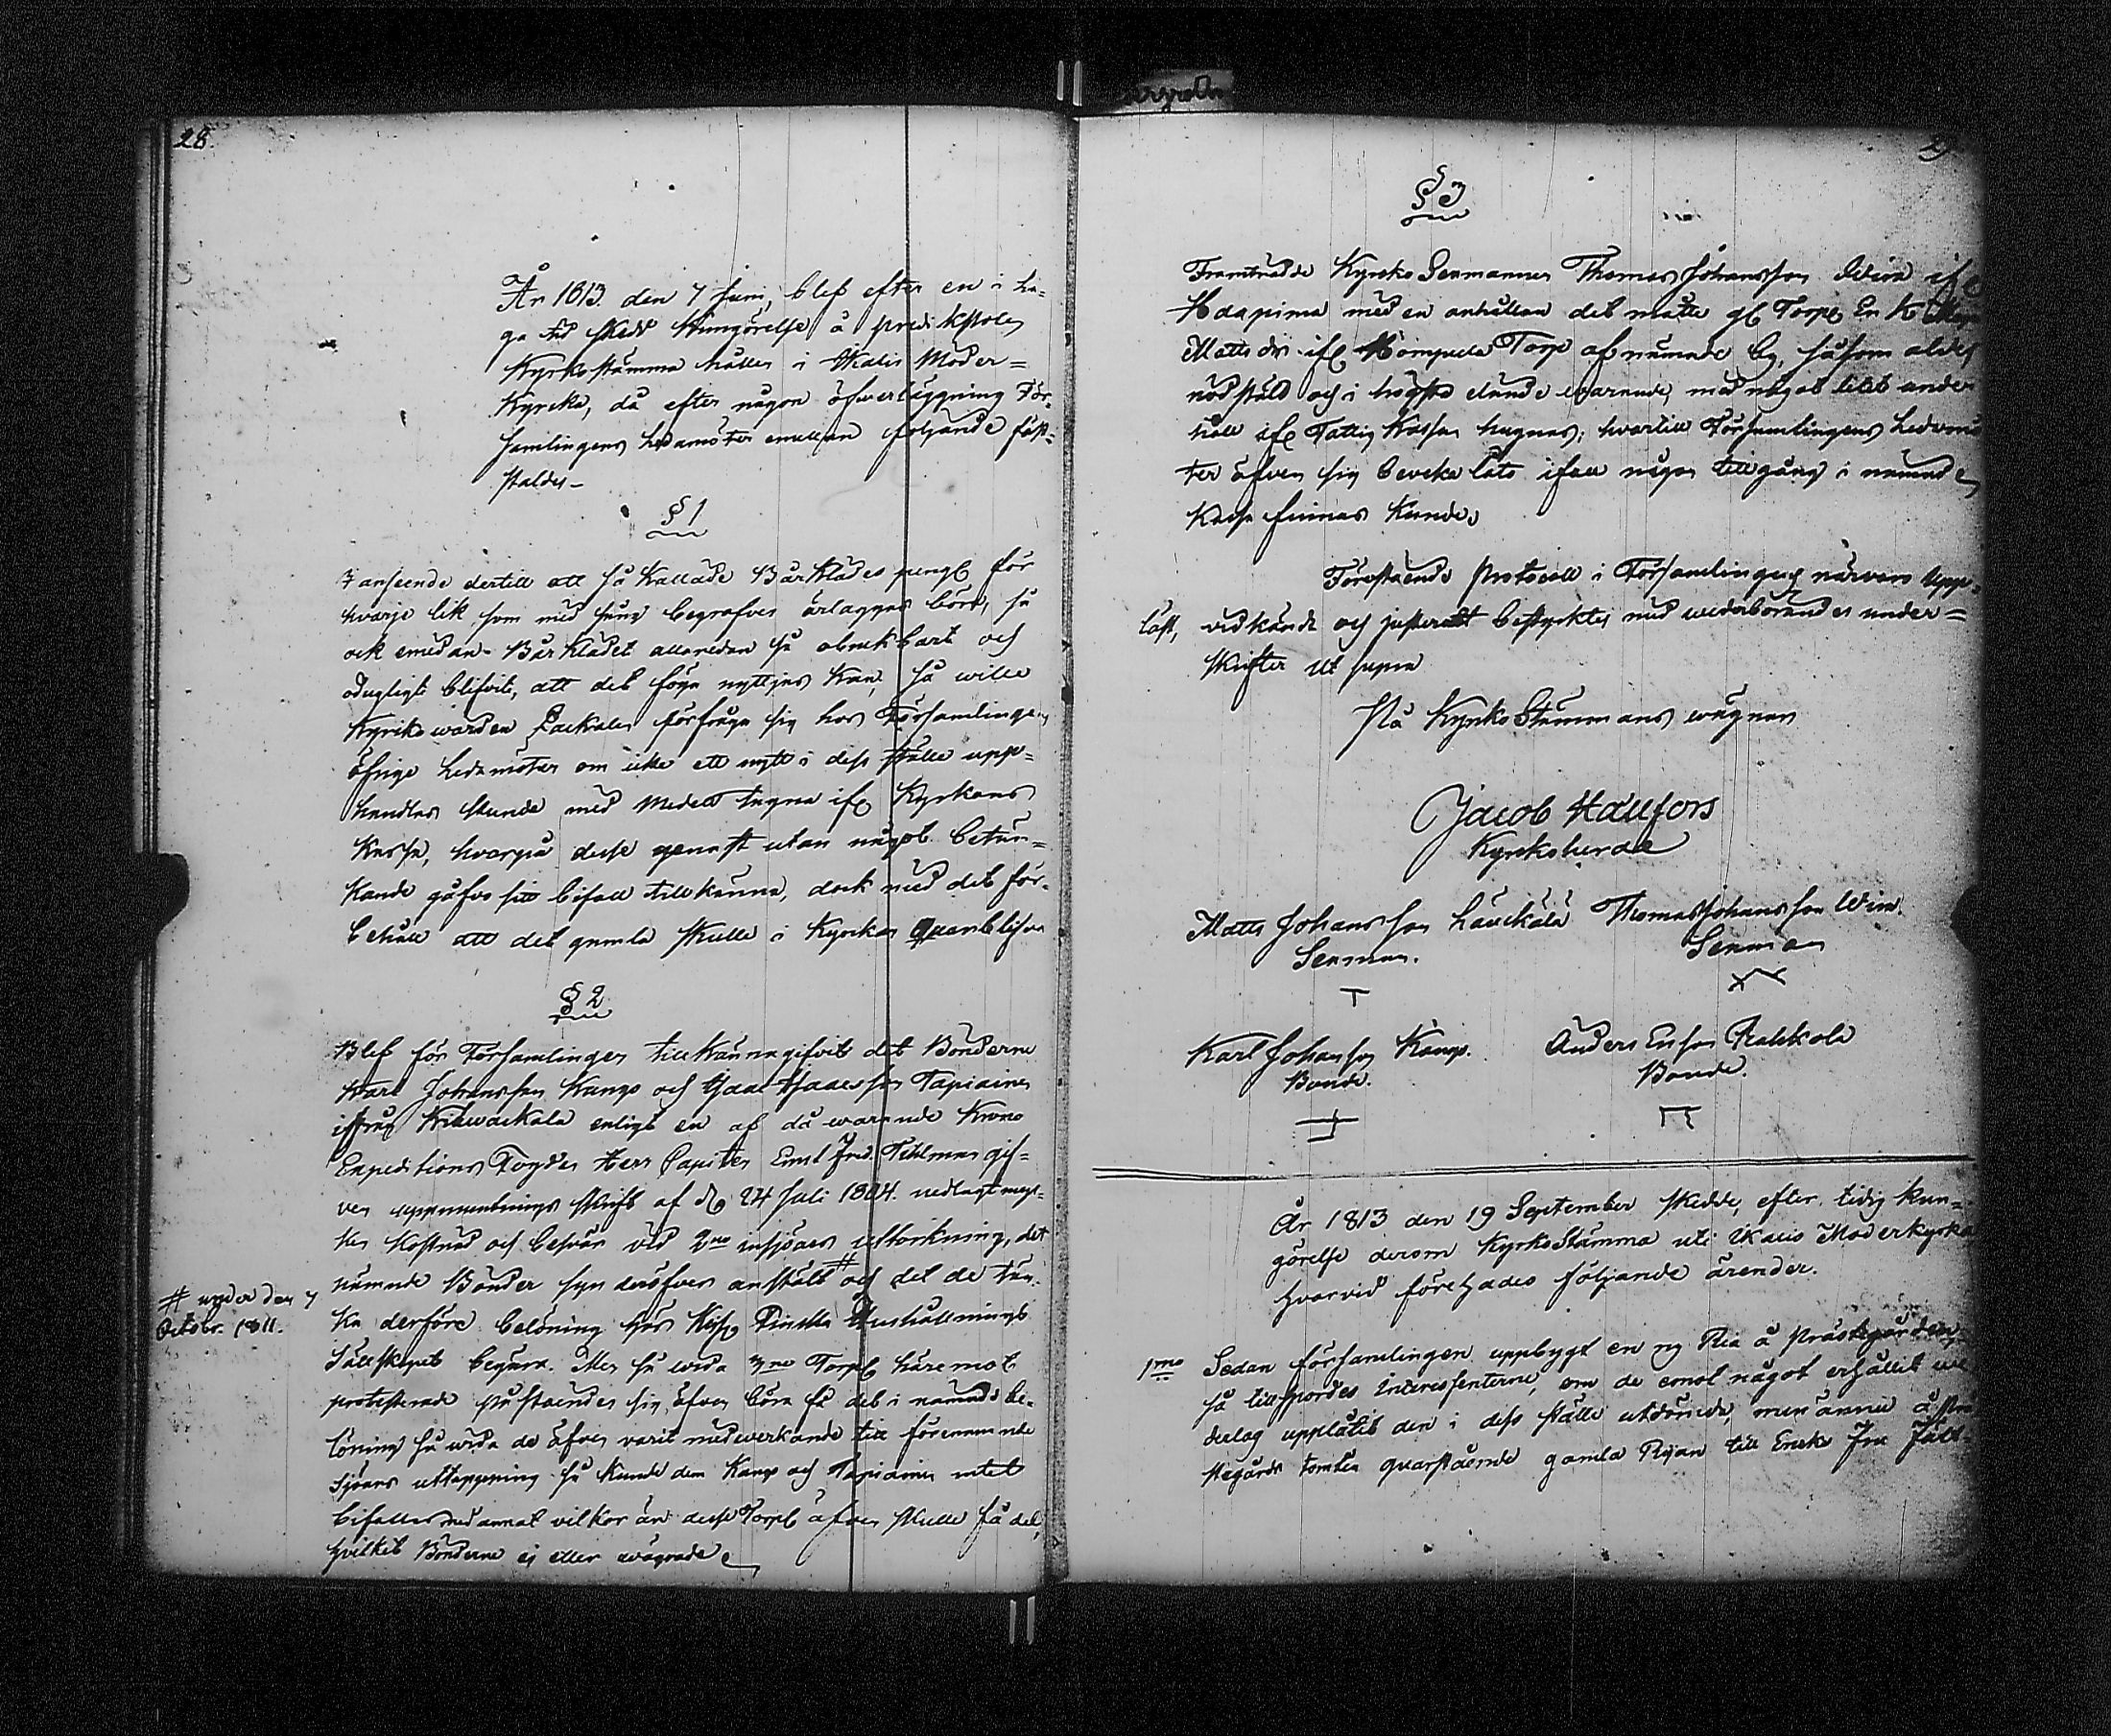 28.
År 1813. den 7 Junii, blef efter en i La-
ga tid skedd Kungörelse å predikstolen
Kyrkostämma hållen i Ikalis Moder=
Kyrcka, då efter någon öfverläggning För-
samlingens Ledamöter emellan följande fast-
staldes –
§ 1
I anseende dertill att så kallade Bårklädes peng:r för
hvarje lik som med sång begrafves ärläggas böra, så
ock emedan Bårklädet allaredan så obrukbart och
odugligt blifvit, att det föga nyttjas kan, så wille
Kyrkowärden förfråga sig hos Församlingens
öfrige Ledamöter om icke ett nytt i dess ställe upp=
handlas skulde med medell tagna ifr: Kyrkans
Kassa, hvarpå desse genast utan något betän=
kande gåfvo sitt bifall tillkänna, dock med det för-
behåll att det gamla skulle i Kyrckan Quarblifva
§ 2
Blef för Församlingen tillkännagifvit det Bönderne
Karl Johansson Kango och Isaac Isaacsson Tapiainen
ifrån enligt en af då warande Krono
Expeditions Fogden Herr Capiten Ernst Fred. Tihlman gif=
ven uppmuntrings skrift af d: 24 Juli 1804. nedlagt myc-
ken kostnad och besvär vid 2ne insjöars uttorkning, det
nämnde Bönder syn deröfver anstält # och det de tän-
ka derföre belöning hos Kejs: Finska Hushållnings
Sällskapet begära. Men så wida 3ne Torp: häremot
protesterade påstående sig äfven böra få del i nämnde be-
löning så wida de äfven varit medverkande till förenämnde
Sjöars uttappning så kunde dem Kango och Tapiainen intet
bifallas med annat vilkor än desse Torp: äfven skulle få del,
hvilket Bönderne ej eller wägrade
# under den 7
Octobr. 1811.
29
§ 3
Framträdde Kyrko Sexmannen Thomas Johansson ifr:
med en anhållan det måtte
Mattsdr ifr: Torp af nämnde by, såsom ålder
nödstäld och i högsta elände warande, med något litet under
håll ifr: Fattig Kassan hugnas; hvartill Församlingens Ledamö
ter äfven sig beveka läto ifall någon tillgång i nämnde
Kassa finnas kunde.
Förestående Protocoll i Församlingens närvaro upp-
läst, vidkändt och justeradt bestyrktes med wederbörandes under=
skrifter Ut supra
På KyrkoStämmans wägnar
Jacob Hallfors
Kyrckoherde
Matts Johansson Thomas Johansson
Sexman. Sexman
Karl Johansson Kango. Anders
Bonde. Bonde.
År 1813 den 19 September skedde, efter tidig kun=
görelse derom KyrkoStämma uti Ikalis Moderkyrka
hvarvid förehades följande ärender.
1mo Sedan församlingen uppbygt en ny Ria å Prästegården
så tillspordes Interessenterne, om de emot något erhållit
deelag upplåtit den i dess ställe utdömde, men ännu å Prä
stegårds tomten quarstående gamla Rijan till Enke Fru Fält-